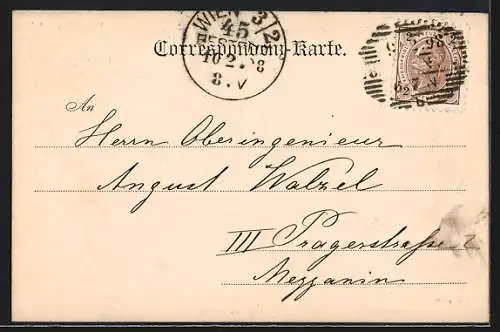 WIEN 3/2
45
BESTELLT
10.2.98
8.V
Correspondenz-Karte.
An
Herrn Oberingenieur
August Walzel
III Pragerstrasse 2
Mezzanin